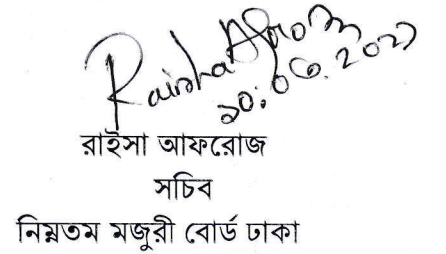 Raisha Afroz
রাইসা আফরোজ
সচিব
নিম্নতম মজুরী বোর্ড ঢাকা